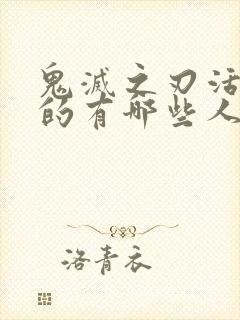 鬼滅之刃活
的有哪些人
洛青衣